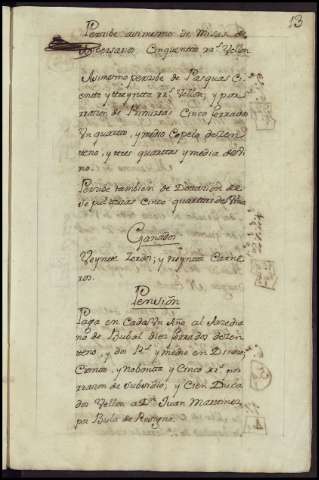 13
Percibe asimismo de Misas de
Aniversario Cinquenta rs. Vellon
Asimismo percibe de Pasquas Ci
ento y treynta rs. Vellon, y por
razon de Primizias Cinco ferrados
Un quarto, y medio Copelo de Zen
teno, y tres quartas y media de Vi
no.
Percibe tambien de Donacion de
Sepulturas Cinco quartas de Vino
Ganados
Veynte Zerdos; y Treynta Carne
ros.
Pension
Paga en Cada Un Año al Arzedia
no de Bubal diez ferrados de Zen
teno, y dos Rs. y medio en Dinero,
Ciento, y Nobenta y Cinco rs. por
razon de Subsidio; y Cien Duca
dos Vellon a Dn. Juan Martinez
por Bula de